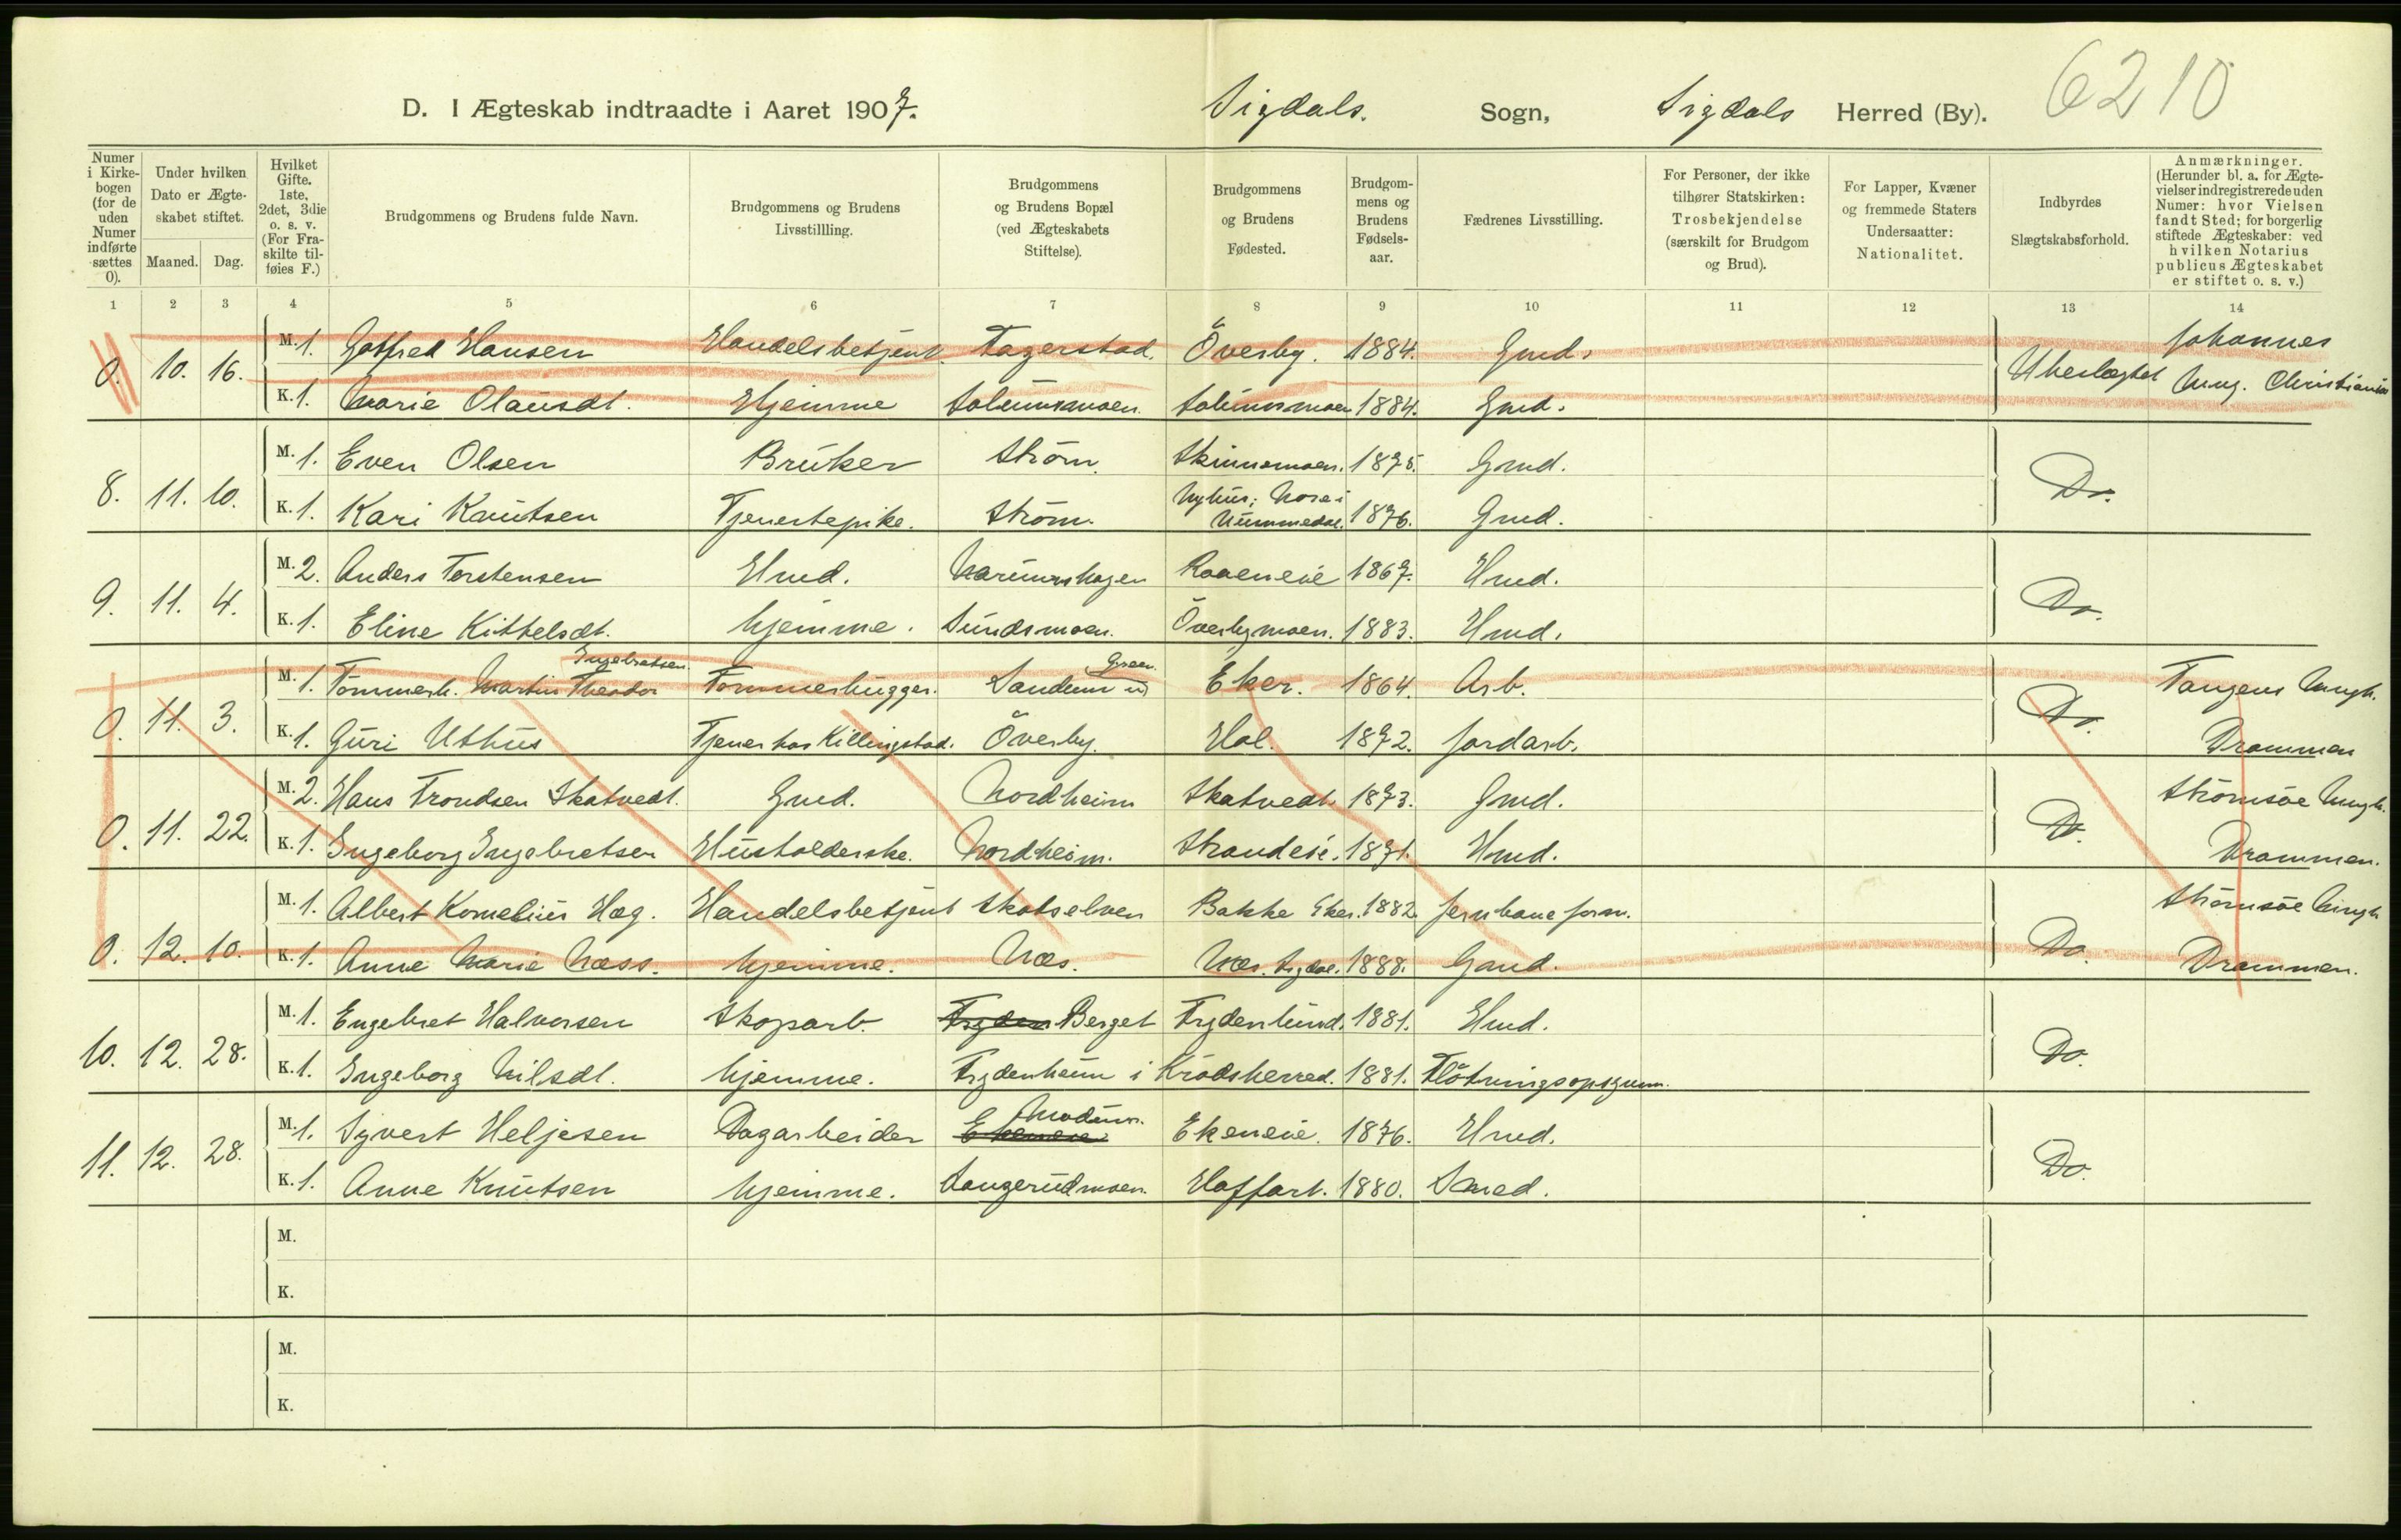 6210
D. I Ægteskab indtraadte i Aaret 1907. Sigdals. Sogn, Sigdals Herred (By).
Numer i Kirkebogen (for de uden Numer indførte sættes 0).
Under hvilken Dato er Ægteskabet stiftet.
Maaned. Dag.
Hvilket Gifte. 1ste, 2det, 3die o. s. v. (For Fraskilte tilføies F.)
Brudgommens og Brudens fulde Navn.
Brudgommens og Brudens Livsstillling.
Brudgommens og Brudens Bopæl (ved Ægteskabets Stiftelse).
Brudgommens og Brudens Fødested.
Brudgommens og Brudens Fødselsaar.
Fædrenes Livsstilling.
For Personer, der ikke tilhører Statskirken: Trosbekjendelse (særskilt for Brudgom og Brud).
For Lapper, Kvæner og fremmede Staters Undersaatter: Nationalitet.
Indbyrdes Slægtskabsforhold.
Anmærkninger. (Herunder bl. a. for Ægtevielser indregistrerede uden Numer: hvor Vielsen fandt Sted; for borgerlig stiftede Ægteskaber: ved hvilken Notarius publicus Ægteskabet er stiftet o. s. v.)
1 2 3 4 5 6 7 8 9 10 11 12 13 14
0. 10. 16. M. 1. Gotfred Hansen Handelsbetjent Fagerstad. Överby. 1884. Gmd. Ubeslægtet Johannes
K. 1. Marie Olausdt. Hjemme Solumsmoen. Solumsmoen 1884. Gmd. Mng. Christiania
8. 11. 10. M. 1. Even Olsen Bruker Ström. Skinnsmoen. 1875. Gmd. Do.
K. 1. Kari Knutsen Tjenestepike. Ström. Nyhus; Nore i Nummedal. 1876. Gmd.
9. 11. 4. M. 2. Anders Torstensen Hmd. Raaeneie 1867. Hmd. Do.
K. 1. Eline Kittelsdt. hjemme. Sundsmoen. Överbymoen. 1883. Hmd.
0. 11. 3. M. 1. Tömmerh. Martin Theodor Engebretsen Tömmerhugger. Eker. 1864. Arb. Do. Tangens Mngh.
K. 1. Guri Uthus Tjener hos Killingstad. Överby. Hol. 1872. Jordarb. Drammen
0. 11. 22. M. 2. Hans Trondsen Skatvedt. Gmd. Nordheim Skatvedt. 1873. Gmd. Do. Strömsöe Mngh.
K. 1. Ingeborg Ingebretsen Husholderske. Nordheim. Strandeie. 1871. Hmd. Drammen.
0. 12. 10. M. 1. Albert Kornelius Hæg. Handelsbetjent Skotselven Bakke Eker. 1882. Jernbaneform. Do. Strömsöe Mngh
K. 1. Anne Marie Næss. hjemme. Næs. Næs. Sigdal. 1888. Gaud. Drammen.
10. 12. 28. M. 1. Engebret Halvorsen Skoparb. Fryden Berget Frydenlund. 1881. Hmd. Do.
K. 1. Ingeborg Nilsdt. hjemme. Frydenheim i Krödsherred. 1881. Flötningsopsynm.
11. 12. 28. M. 1. Syvert Heljesen Dagarbeider Ekeneie Modum. Ekeneie. 1876. Hmd. Do.
K. 1. Anne Knutsen hjemme. Langerudmoen. Hoffart. 1880. Smed.
M.
K.
M.
K.